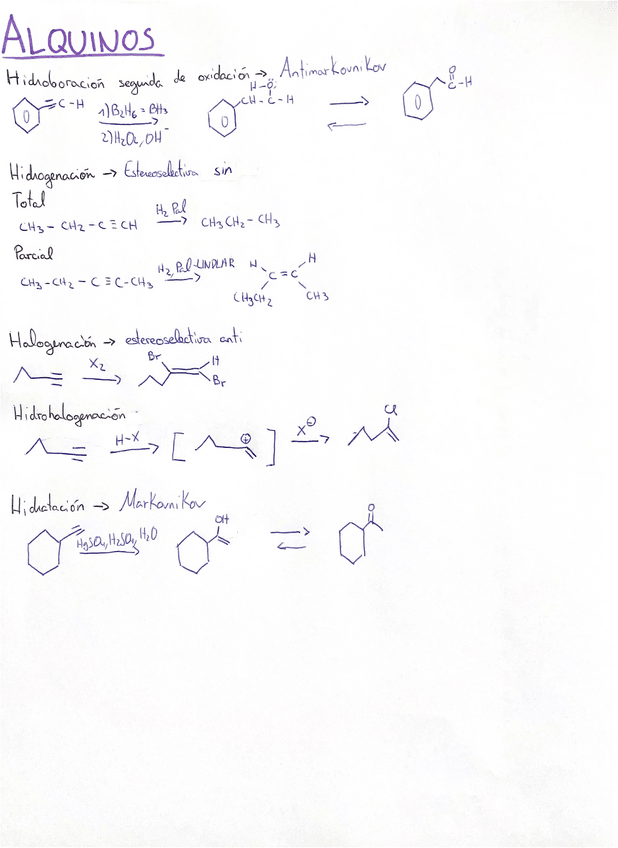 ALQUINOS
Hidroboración seguida de oxidación → Antimarkovnikov
≡C-H 1) B2H6 = BH3 2) H2O2, OH⁻ H-Ö: CH-C-H O C-H
Hidrogenación → Estereoselectiva sin
Total
CH3 - CH2 - C ≡ CH H2 Pd CH3CH2 - CH3
Parcial
CH3 - CH2 - C ≡ C - CH3 H2, Pd-LINDLAR H H C = C CH3CH2 CH3
Halogenación → estereoselectiva anti
X2 Br H Br
Hidrohalogenación
H-X [ ⊕ ] X⊖ Cl
Hidratación → Markovnikov
HgSO4, H2SO4, H2O OH O